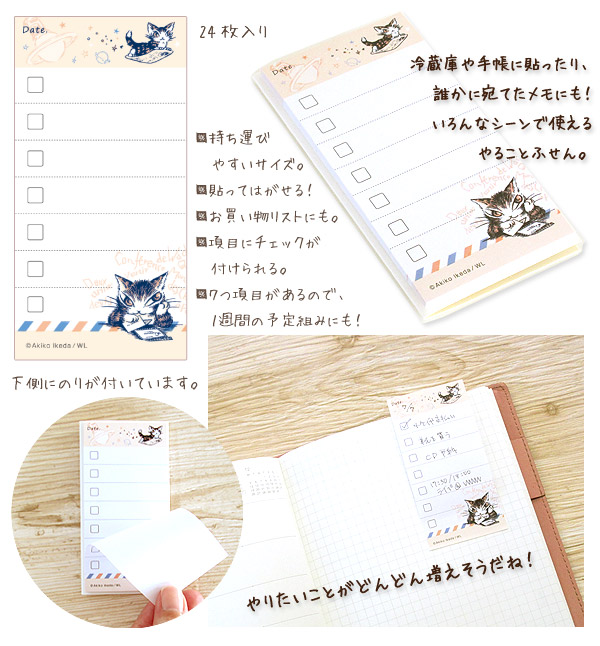 Date.
24枚入り
©Akiko Ikeda/WL
持ち運び
やすいサイズ。
貼ってはがせる!
お買い物リストにも。
項目にチェックが
付けられる。
7つ項目があるので、
1週間の予定組みにも!
Date.
©Akiko Ikeda/WL
冷蔵庫や手帳に貼ったり、
誰かに宛てたメモにも!
いろんなシーンで使える
やることふせん。
下側にのりが付いています。
Date.
©Akiko Ikeda/WL
Date.
7/7
本を買う
©Akiko Ikeda/WL
やりたいことがどんどん増えそうだね!